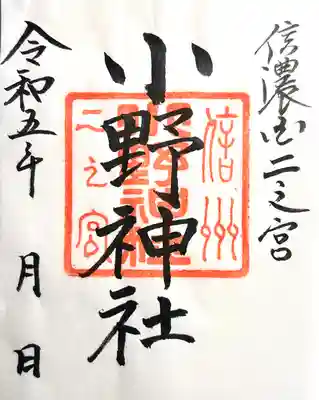 信濃国二之宮
小野神社
令和五年 月 日
信州
小野神社
二之宮